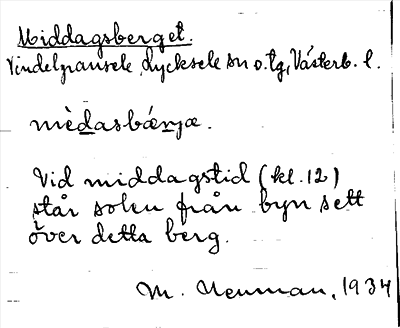 Middagsberget.
Vindelgransele, Lycksele sn o. tg, Västerb. l.
mèdasbárjæ.
Vid middagstid (kl. 12)
står solen från byn sett
över detta berg.
M. Neuman, 1934